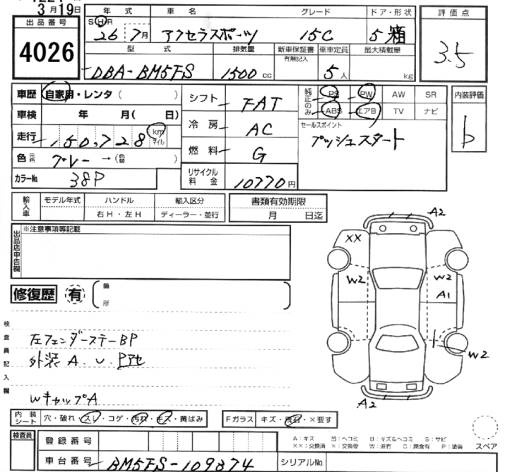 3月19日
出品番号
4026
年式 車名 グレード ドア・形状
S H R
26年 7月 アクセラスポーツ 15C 5 箱
型式 排気量 新車保証書 有無記入 乗車定員 最大積載量
DBA-BM5FS 1500cc 5人 kg
評価点
3.5
車歴 自家用・レンタ( )
車検 年 月( 日)
走行 150,728 km マイル
色 元色 グレー →(色替 )
カラーNo 38P
シフト FAT
冷房 AC
燃料 G
リサイクル料金 10770円
純正のみ PS PW AW SR
ABS エアB TV ナビ
セールスポイント
プッシュスタート
内装評価
b
輸入車 モデル年式 ハンドル 輸入区分
右H・左H ディーラー・並行
書類有効期限
月 日迄
出品店申告欄
※注意事項等記載
修復歴 有 箇所
検査員記入欄
左フェンダーステーBP
外装 A.U.P他
WキャップA
A2
XX
W2
W2
A1
W2
A2
内装シート 穴・破れ・スレ・コゲ・汚れ・キズ・黄ばみ
Fガラス キズ・飛石・×要す
検査員
登録番号
車台番号 BM5FS-109874
シリアルNo
A:キズ B:キズ&ヘコミ S:サビ
XX:交換済 X:交換要 P:塗装
スペア